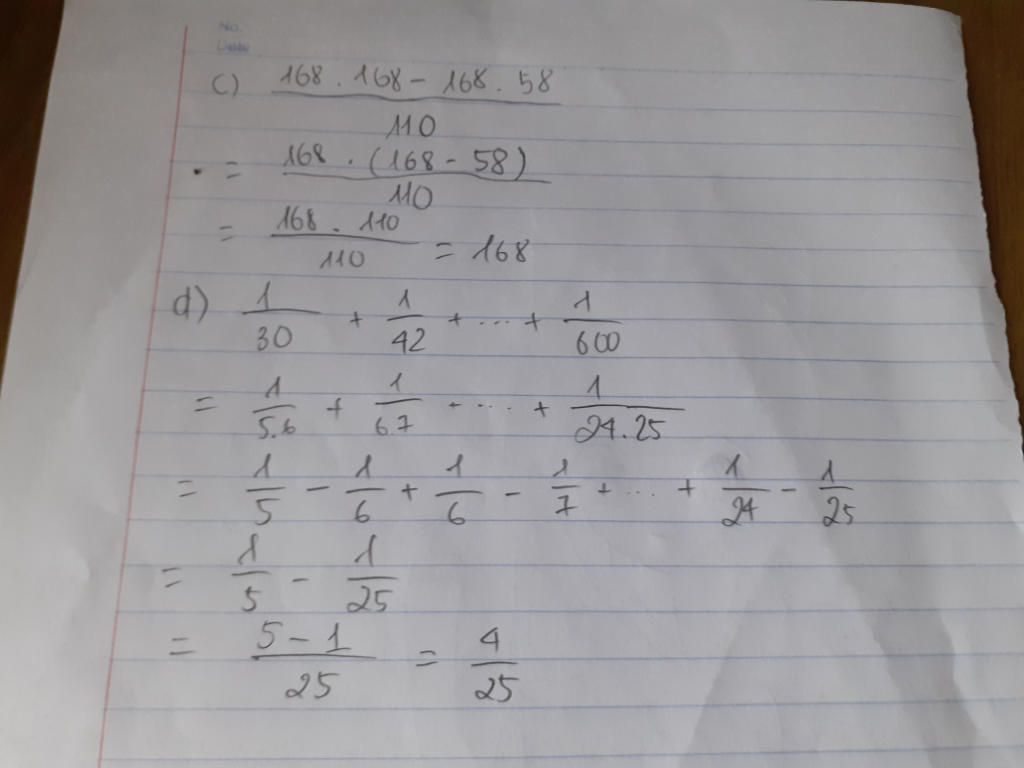 No.
Date
c) 168 . 168 - 168 . 58
110
= 168 . (168 - 58)
110
= 168 . 110
110 = 168
d) 1/30 + 1/42 + ... + 1/600
= 1/5.6 + 1/6.7 + ... + 1/24.25
= 1/5 - 1/6 + 1/6 - 1/7 + ... + 1/24 - 1/25
= 1/5 - 1/25
= 5 - 1/25 = 4/25